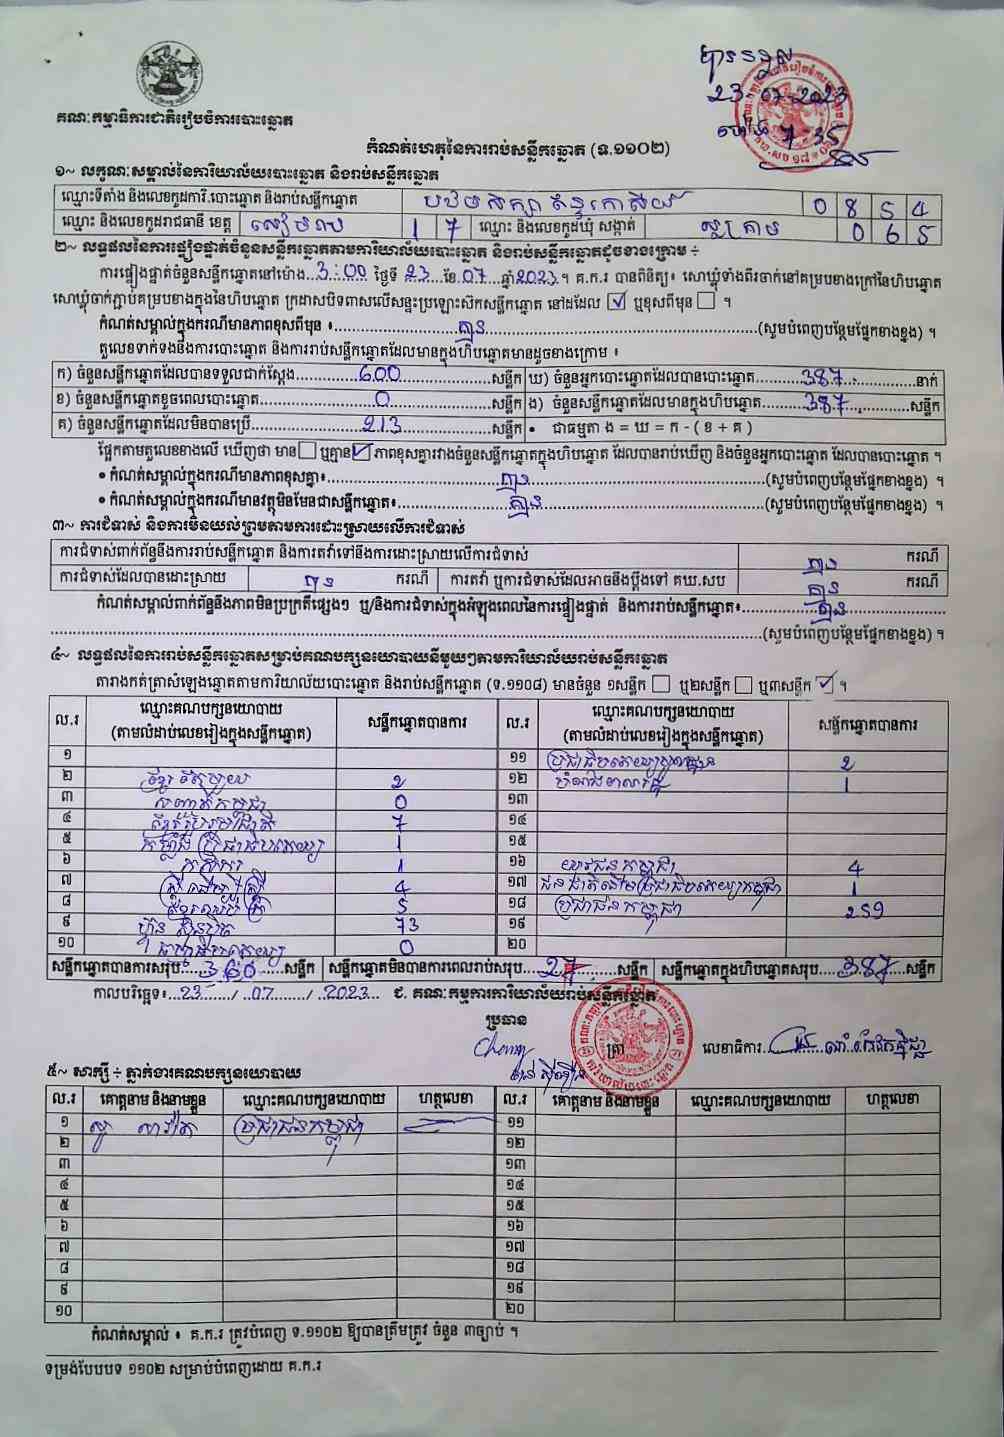 បានទទួល
23-07-2023
ម៉ោង 7 35
គណៈកម្មាធិការជាតិរៀបចំការបោះឆ្នោត
កំណត់ហេតុនៃការរាប់សន្លឹកឆ្នោត (ទ.១១០២)
១~ លក្ខណៈសម្គាល់នៃការិយាល័យបោះឆ្នោត និងរាប់សន្លឹកឆ្នោត
ឈ្មោះទីតាំង និងលេខកូដការិ.បោះឆ្នោត និងរាប់សន្លឹកឆ្នោត បឋមសិក្សា 0 8 5 4
ឈ្មោះ និងលេខកូដរាជធានី ខេត្ត សៀមរាប 1 7 ឈ្មោះ និងលេខកូដឃុំ សង្កាត់ ស្លក្រាម 0 6 5
២~ លទ្ធផលនៃការផ្ទៀងផ្ទាត់ចំនួនសន្លឹកឆ្នោតតាមការិយាល័យបោះឆ្នោត និងរាប់សន្លឹកឆ្នោតដូចខាងក្រោម ÷
ការផ្ទៀងផ្ទាត់ចំនួនសន្លឹកឆ្នោតនៅម៉ោង 3:00 ថ្ងៃទី 23 ខែ 07 ឆ្នាំ 2023 ។ គ.ក.រ បានពិនិត្យ៖ សោឃ្លុំទាំងពីរចាក់នៅគម្របខាងក្រៅនៃហិបឆ្នោត
សោឃ្លុំចាក់ភ្ជាប់គម្របខាងក្នុងនៃហិបឆ្នោត ក្រដាសបិទពាសលើសន្ទះប្រឡោះស៊កសន្លឹកឆ្នោត នៅដដែល ☑ ឬខុសពីមុន ☐ ។
កំណត់សម្គាល់ក្នុងករណីមានភាពខុសពីមុន ៖ គ្មាន (សូមបំពេញបន្ថែមផ្នែកខាងខ្នង) ។
តួលេខទាក់ទងនឹងការបោះឆ្នោត និងការរាប់សន្លឹកឆ្នោតដែលមានក្នុងហិបឆ្នោតមានដូចខាងក្រោម ៖
ក) ចំនួនសន្លឹកឆ្នោតដែលបានទទួលជាក់ស្តែង 600 សន្លឹក ឃ) ចំនួនអ្នកបោះឆ្នោតដែលបានបោះឆ្នោត 387 នាក់
ខ) ចំនួនសន្លឹកឆ្នោតខូចពេលបោះឆ្នោត 0 សន្លឹក ង) ចំនួនសន្លឹកឆ្នោតដែលមានក្នុងហិបឆ្នោត 387 សន្លឹក
គ) ចំនួនសន្លឹកឆ្នោតដែលមិនបានប្រើ 213 សន្លឹក • ជាធម្មតា ង = ឃ = ក - ( ខ + គ )
ផ្អែកតាមតួលេខខាងលើ ឃើញថា មាន ☐ ឬគ្មាន ☑ ភាពខុសគ្នារវាងចំនួនសន្លឹកឆ្នោតក្នុងហិបឆ្នោត ដែលបានរាប់ឃើញ និងចំនួនអ្នកបោះឆ្នោត ដែលបានបោះឆ្នោត ។
• កំណត់សម្គាល់ក្នុងករណីមានភាពខុសគ្នា៖ គ្មាន (សូមបំពេញបន្ថែមផ្នែកខាងខ្នង) ។
• កំណត់សម្គាល់ក្នុងករណីមានវត្ថុមិនមែនជាសន្លឹកឆ្នោត៖ គ្មាន (សូមបំពេញបន្ថែមផ្នែកខាងខ្នង) ។
៣~ ការជំទាស់ និងការមិនយល់ព្រមតាមការដោះស្រាយលើការជំទាស់
ការជំទាស់ពាក់ព័ន្ធនឹងការរាប់សន្លឹកឆ្នោត និងការតវ៉ាទៅនឹងការដោះស្រាយលើការជំទាស់ គ្មាន ករណី
ការជំទាស់ដែលបានដោះស្រាយ គ្មាន ករណី ការតវ៉ា ឬការជំទាស់ដែលអាចនឹងប្តឹងទៅ គឃ.សប គ្មាន ករណី
កំណត់សម្គាល់ពាក់ព័ន្ធនឹងភាពមិនប្រក្រតីផ្សេងៗ ឬ/និងការជំទាស់ក្នុងអំឡុងពេលនៃការផ្ទៀងផ្ទាត់ និងការរាប់សន្លឹកឆ្នោត៖ គ្មាន
(សូមបំពេញបន្ថែមផ្នែកខាងខ្នង) ។
៤~ លទ្ធផលនៃការរាប់សន្លឹកឆ្នោតសម្រាប់គណបក្សនយោបាយនីមួយៗតាមការិយាល័យរាប់សន្លឹកឆ្នោត
តារាងកត់ត្រាសំឡេងឆ្នោតតាមការិយាល័យបោះឆ្នោត និងរាប់សន្លឹកឆ្នោត (ទ.១១០៨) មានចំនួន ១សន្លឹក ☐ ឬ២សន្លឹក ☐ ឬ៣សន្លឹក ☑ ។
ល.រ ឈ្មោះគណបក្សនយោបាយ (តាមលំដាប់លេខរៀងក្នុងសន្លឹកឆ្នោត) សន្លឹកឆ្នោតបានការ ល.រ ឈ្មោះគណបក្សនយោបាយ (តាមលំដាប់លេខរៀងក្នុងសន្លឹកឆ្នោត) សន្លឹកឆ្នោតបានការ
១ ១១ 2
២ 2 ១២ 1
៣ 0 ១៣
៤ 7 ១៤
៥ កម្លាំងប្រជាធិបតេយ្យ 1 ១៥
៦ កសិករ 1 ១៦ យុវជនកម្ពុជា 4
៧ ស្ត្រីដើម្បីស្ត្រី 4 ១៧ 1
៨ 5 ១៨ ប្រជាជនកម្ពុជា 259
៩ ហ៊្វុនស៊ិនប៉ិច 73 ១៩
១០ 0 ២០
សន្លឹកឆ្នោតបានការសរុប 360 សន្លឹក សន្លឹកឆ្នោតមិនបានការពេលរាប់សរុប 27 សន្លឹក សន្លឹកឆ្នោតក្នុងហិបឆ្នោតសរុប 387 សន្លឹក
កាលបរិច្ឆេទ៖ 23 / 07 / 2023 ជ. គណៈកម្មការការិយាល័យរាប់សន្លឹកឆ្នោត
ប្រធាន ត្រា លេខាធិការ
៥~ សាក្សី ÷ ភ្នាក់ងារគណបក្សនយោបាយ
ល.រ គោត្តនាម និងនាមខ្លួន ឈ្មោះគណបក្សនយោបាយ ហត្ថលេខា ល.រ គោត្តនាម និងនាមខ្លួន ឈ្មោះគណបក្សនយោបាយ ហត្ថលេខា
១ ប្រជាជនកម្ពុជា ១១
២ ១២
៣ ១៣
៤ ១៤
៥ ១៥
៦ ១៦
៧ ១៧
៨ ១៨
៩ ១៩
១០ ២០
កំណត់សម្គាល់ ៖ គ.ក.រ ត្រូវបំពេញ ទ.១១០២ ឱ្យបានត្រឹមត្រូវ ចំនួន ៣ច្បាប់ ។
ទម្រង់បែបបទ ១១០២ សម្រាប់បំពេញដោយ គ.ក.រ